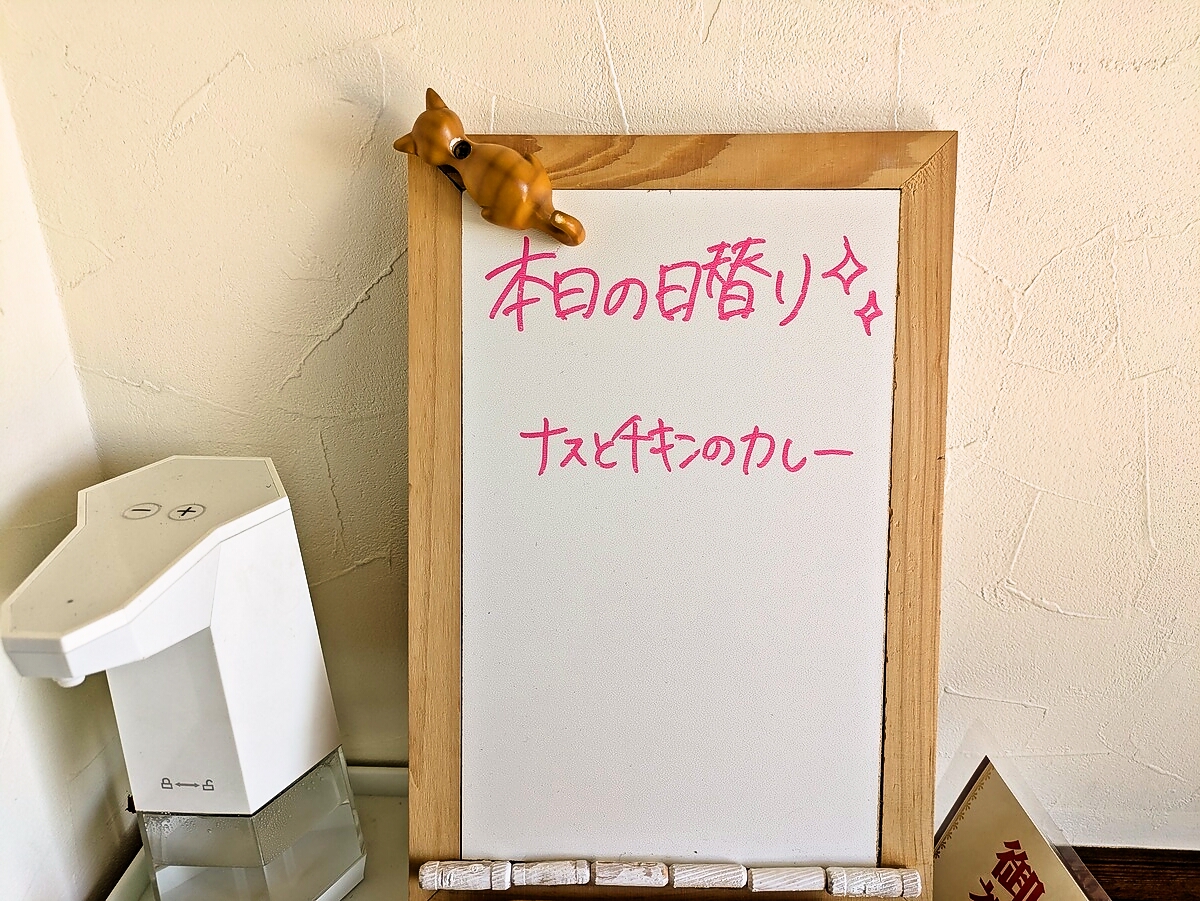 本日の日替り
ナスとチキンのカレー
− +
御